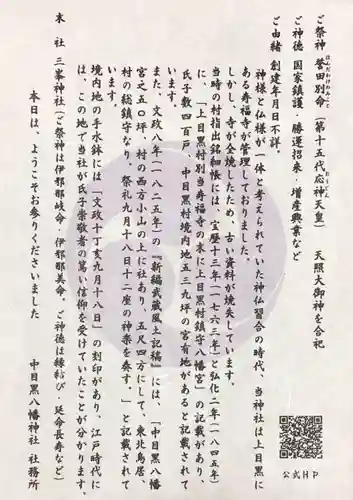 ご祭神 誉田別命（第十五代応神天皇） 天照大御神を合祀
ほんだわけのみこと
おうじん
ご神徳 国家鎮護・勝運招来・増産興業など
ご由緒 創建年月日不詳。
神様と仏様が一体と考えられていた神仏習合の時代、当神社は上目黒に
ある寿福寺が管理しておりました。
しかし、寺が全焼したため、古い資料が焼失しています。
当時の村指出銘細帳には、宝歴十三年（一七六三年）と弘化二年（一八四五年）
に、「上目黒村別当寿福寺の末に上目黒村鎮守八幡宮」の記載があり、
氏子数四百戸、中目黒村境内地五三九坪の宮有地があると記載されて
います。
また、文政八年（一八二五年）の『新編武蔵風土記稿』には、「中目黒八幡
宮之五〇坪、村の西方小山の上に社あり、五尺四方にして、東北鳥居、
村の総鎮守なり。祭礼九月十八日十二座の神楽を奏す。」と記載されて
います。
境内地の手水鉢には「文政十丁亥九月十八日」の刻印があり、江戸時代に
は、この地で当社が氏子崇敬者の篤い信仰を受けていたことが分かります。
末 社 三峯神社（ご祭神は伊邪那岐命 伊邪那美命、ご神徳は縁結び・延命長寿など）
本日は、ようこそお参りくださいました
中目黒八幡神社 社務所
公式HP